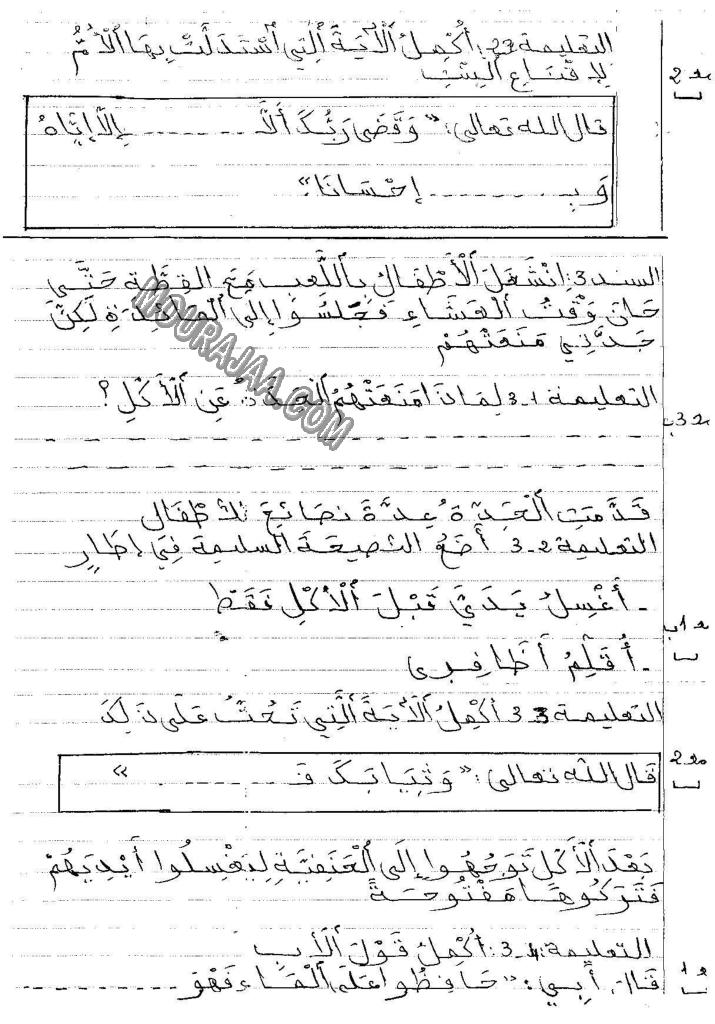 التعليمة 2-2: أُكْمِلُ ٱلْآيَةَ ٱلَّتِي ٱسْتَدَلَّتْ بِهَا ٱلْأُمُّ
لِإِقْنَاعِ ٱلْبِنْتِ
مع 2
قال الله تعالى: "وَقَضَى رَبُّكَ أَلَّا ------- إِلَّا إِيَّاهُ
وَبِـ -------- إِحْسَانًا"
السند 3: اِنْشَغَلَ ٱلْأَطْفَالُ بِاللَّعِبِ مَعَ القِطَّةِ حَتَّى
حَانَ وَقْتُ ٱلْعَشَاءِ فَجَلَسُوا إِلَى ٱلْمَائِدَةِ لَكِنَّ
جَدَّتِي مَنَعَتْهُمْ
MOURAJAA.COM
التعليمة 3-1 لِمَاذَا مَنَعَتْهُمُ ٱلْجَدَّةُ عَنِ ٱلْأَكْلِ؟
مع 3ب
قَدَّمَتِ ٱلْجَدَّةُ عِدَّةَ نصَائِحَ للأطْفَالِ
التعليمة 3-2 أَضَعُ النَّصِيحَةَ السَّلِيمَةَ فِي إِطَارٍ
- أَغْسِلُ يَدَيَّ قَبْلَ ٱلْأَكْلِ فَقَطْ
مع 1ب
- أُقَلِّمُ أَظَافِرِي
التعليمة 3-3 أُكْمِلُ ٱلْآيَةَ ٱلَّتِي تَحُثُّ عَلَى ذَلِكَ
مع 2
قَالَ اللَّه تعالى: "وَثِيَابَكَ فَـ --------- "
بَعْدَ ٱلْأَكْلِ تَوَجَّهُوا إِلَى ٱلْحَنَفِيَّةِ لِيَغْسِلُوا أَيْدِيَهُمْ
فَتَرَكُوهَا مَفْتُوحَةً
التعليمة 3-4: أُكْمِلُ قَوْلَ ٱلْأَبِ
قَالَ أَبِي: "حَافِظُوا عَلَى ٱلْمَاءِ فَهْوَ ----------
مع 1